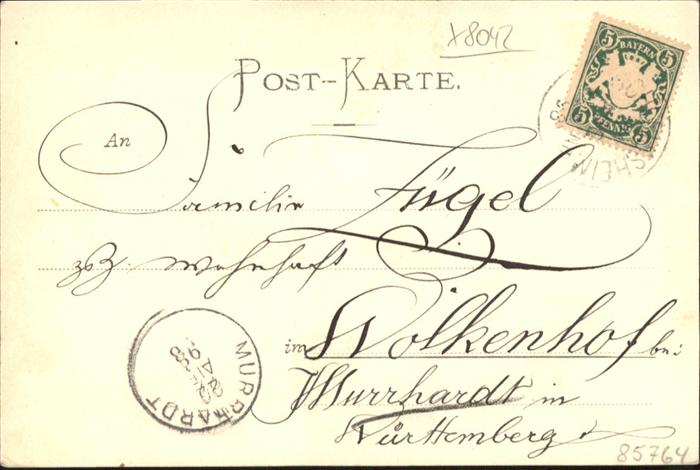 x8042
5 BAYERN 5
5 PFENNIG 5
SHEIM
POST-KARTE.
An
Die
Familie Fügel
wohnhaft
im Wolkenhof bei
Murrhardt in
Württemberg
MURRHARDT
85764